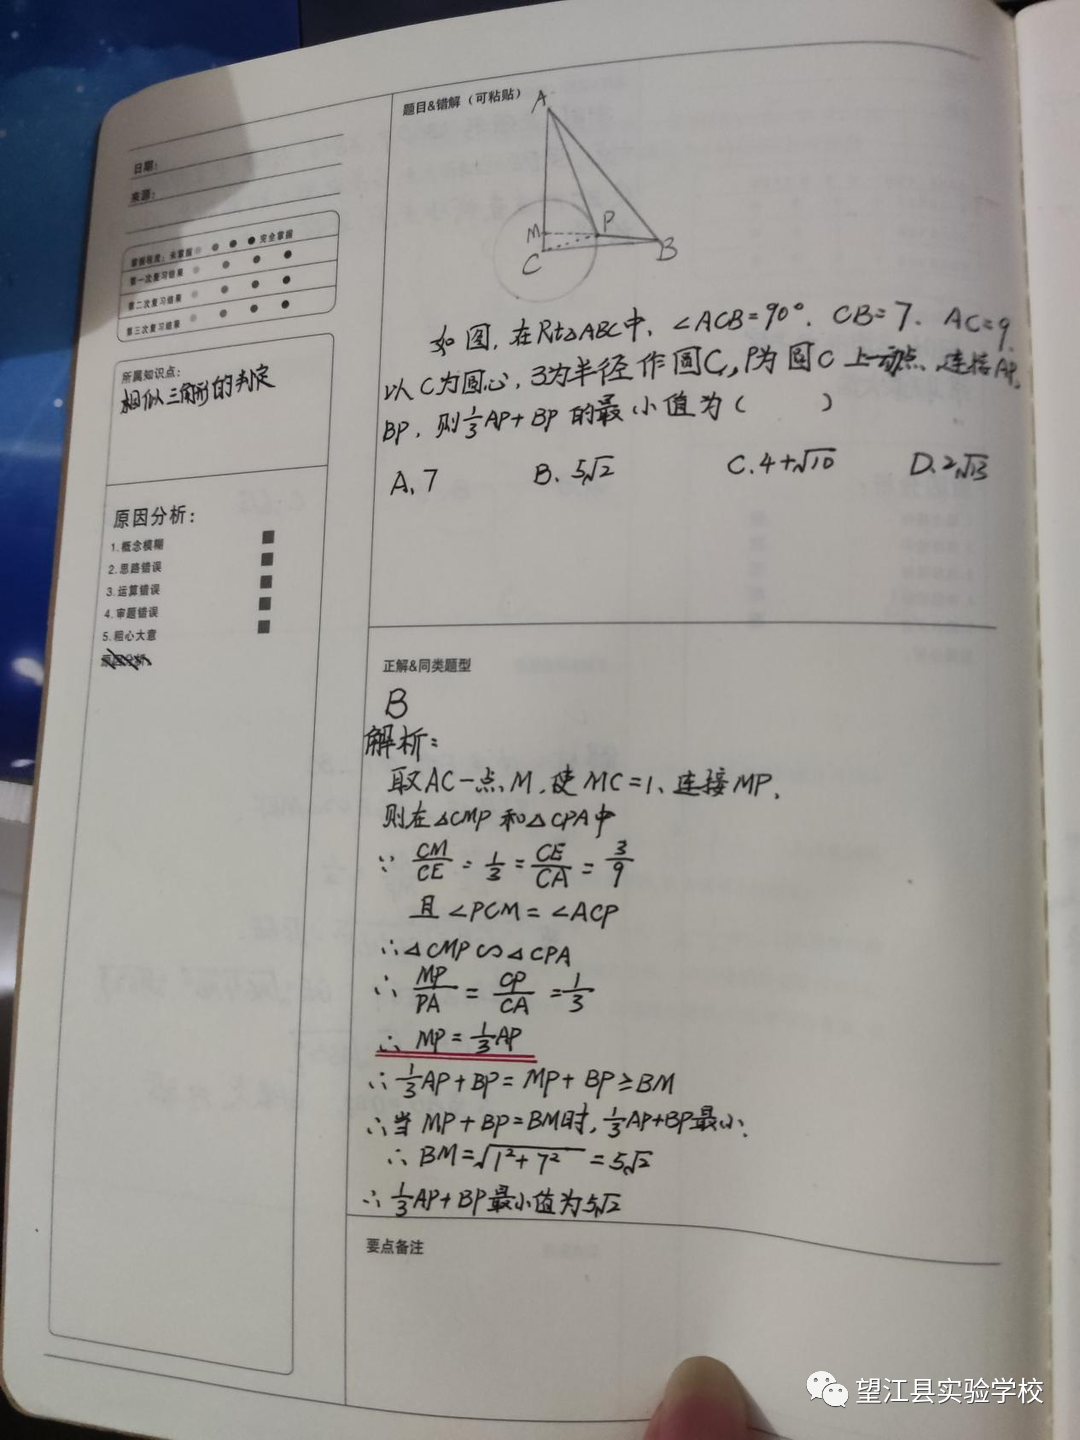 日期：
来源：
掌握程度：未掌握 完全掌握
第一次复习结果
第二次复习结果
第三次复习结果
所属知识点：
相似三角形的判定
原因分析：
1.概念模糊
2.思路错误
3.运算错误
4.审题错误
5.粗心大意
题目&错解（可粘贴）
A
M
P
C
B
如图，在Rt△ABC中，∠ACB=90°，CB=7，AC=9，
以C为圆心，3为半径作圆C，P为圆C上一动点，连接AP，
BP，则1/3AP+BP的最小值为（ ）
A、7 B、5√2 C、4+√10 D、2√13
正解&同类题型
B
解析：
取AC一点M，使MC=1、连接MP，
则在△CMP和△CPA中
∵ CM/CE = 1/3 = CE/CA = 3/9
且∠PCM=∠ACP
∴△CMP∽△CPA
∴ MP/PA = CP/CA = 1/3
∴ MP=1/3AP
∴1/3AP+BP=MP+BP≥BM
∴当MP+BP=BM时，1/3AP+BP最小，
∴BM=√1²+7² =5√2
∴1/3AP+BP最小值为5√2
要点备注
望江县实验学校